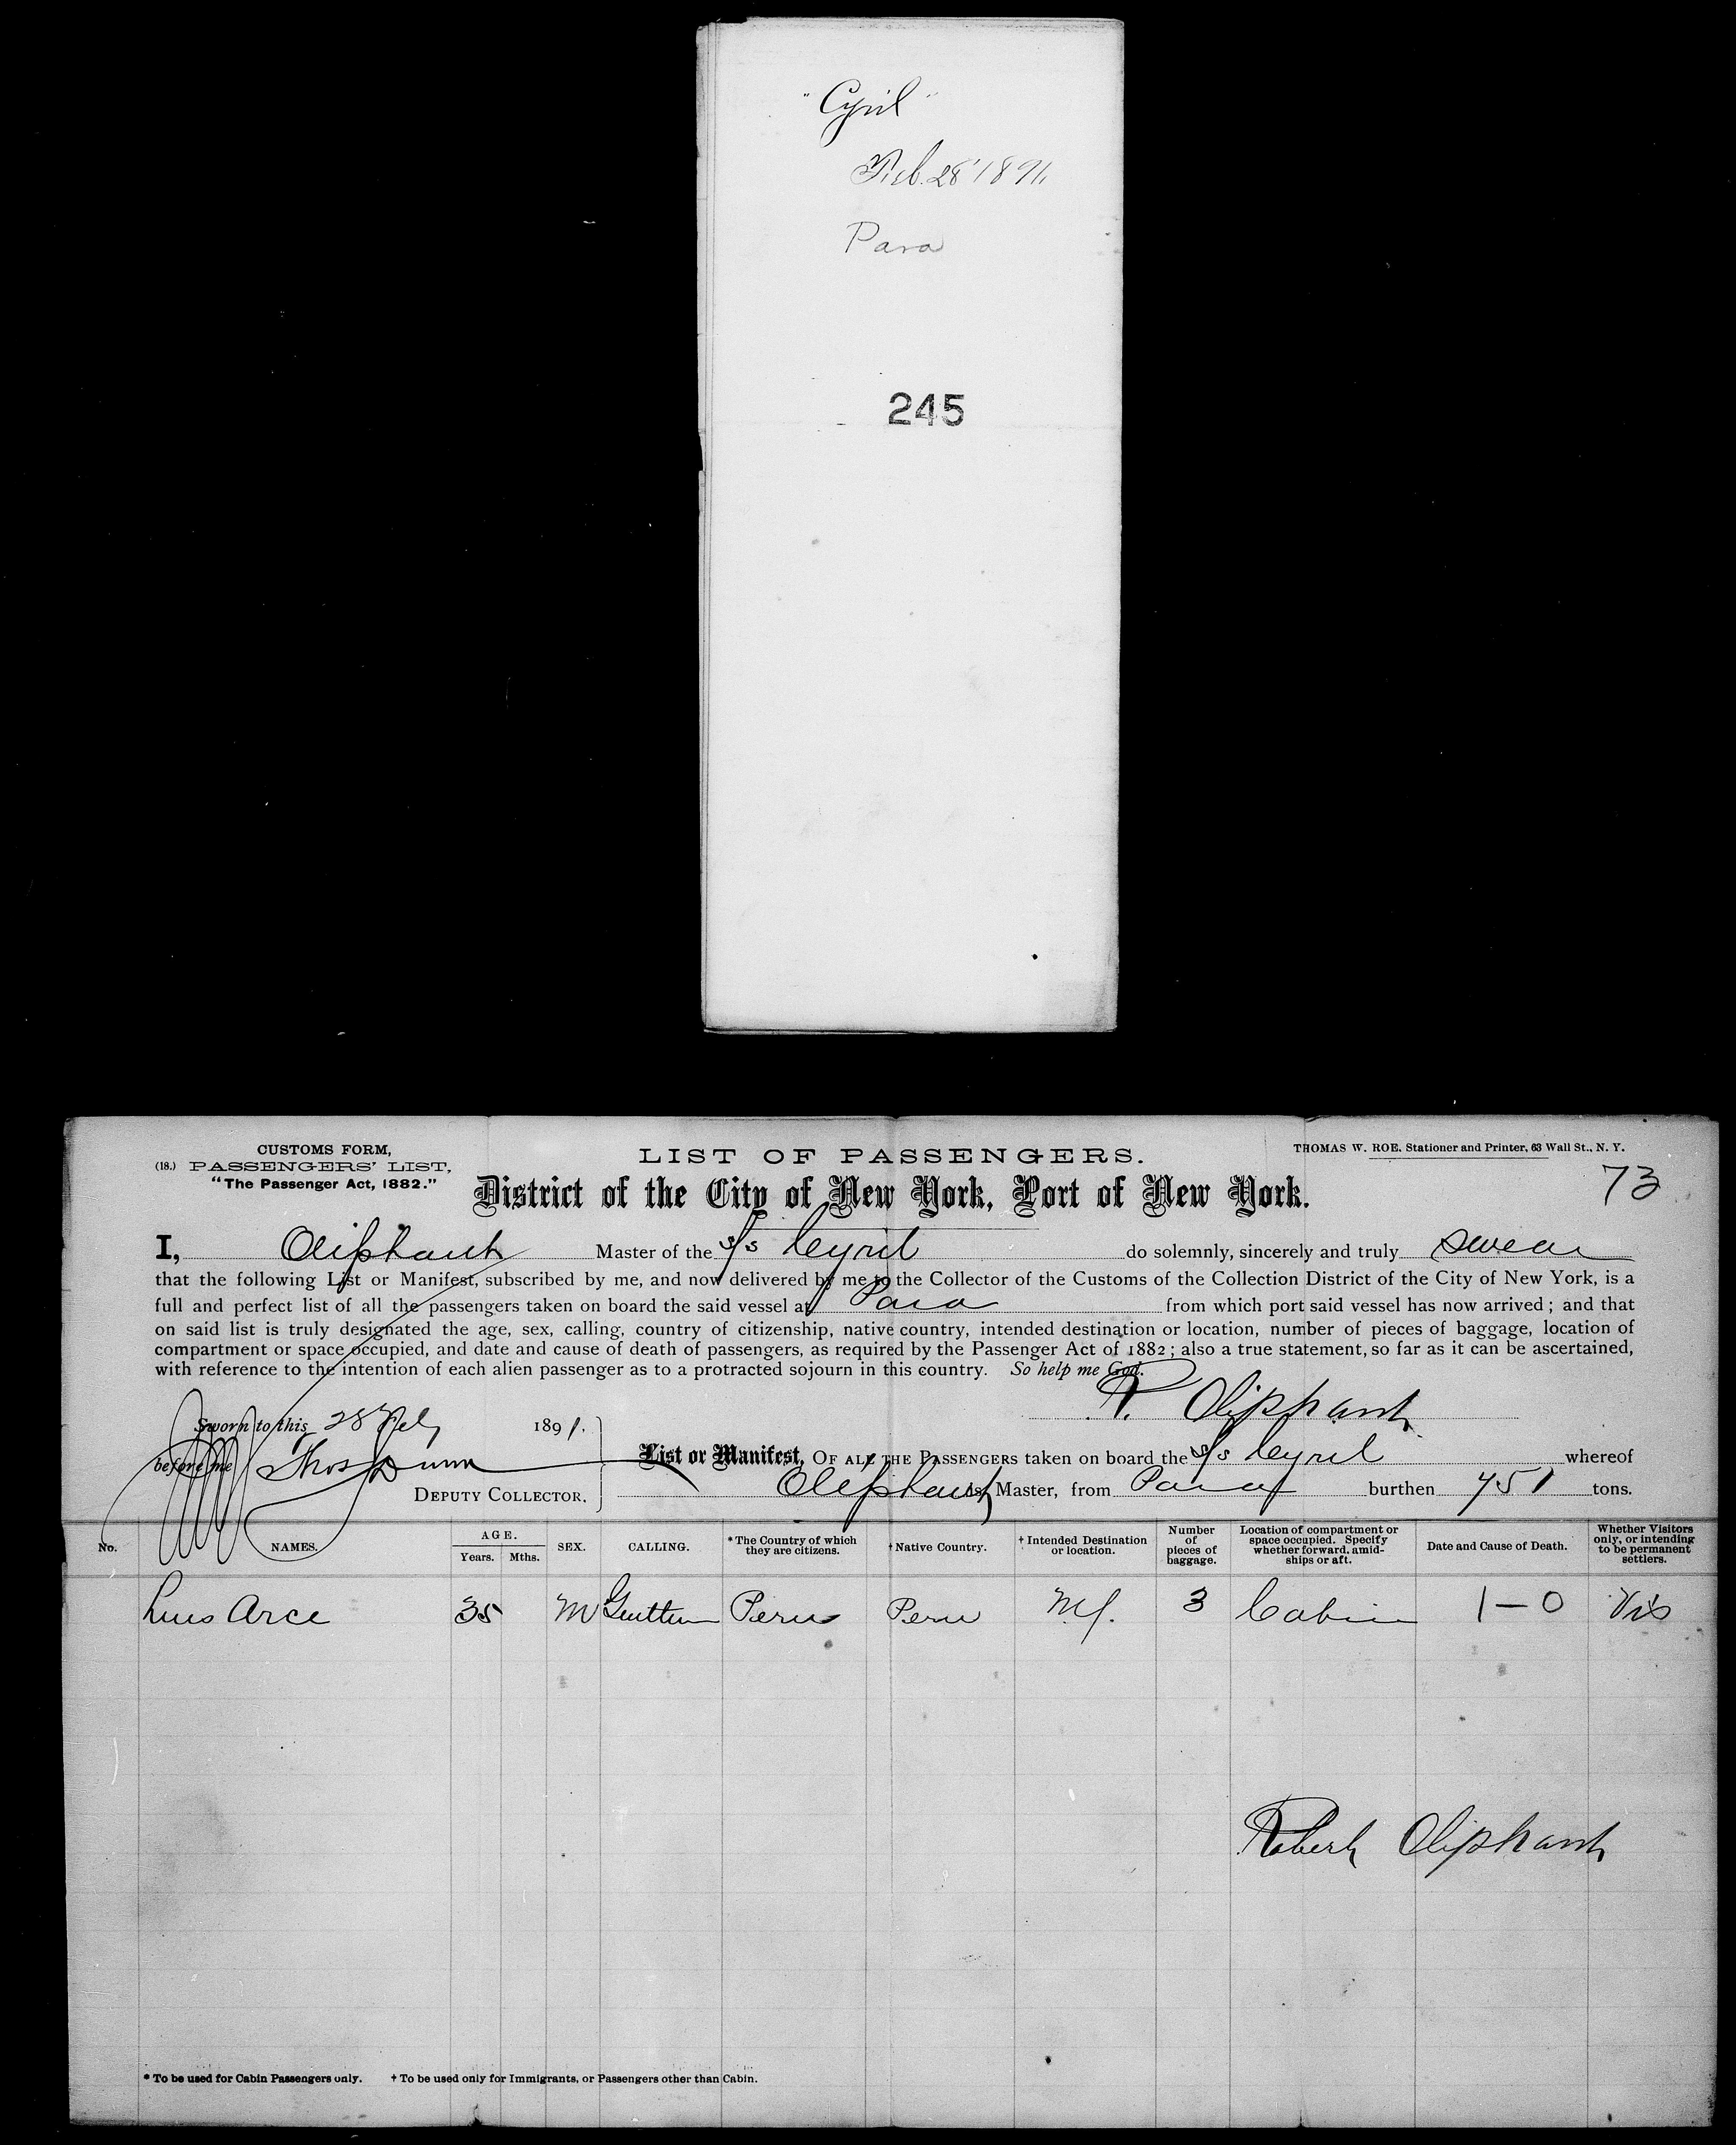 "Cyril"
Feb. 28 1891
Para
245
CUSTOMS FORM,
(18.) PASSENGERS' LIST,
"The Passenger Act, 1882."
LIST OF PASSENGERS.
THOMAS W. ROE, Stationer and Printer, 63 Wall St., N. Y.
District of the City of New York, Port of New York.
73
I, Oliphant Master of the S/s Cyril do solemnly, sincerely and truly swear
that the following List or Manifest, subscribed by me, and now delivered by me to the Collector of the Customs of the Collection District of the City of New York, is a
full and perfect list of all the passengers taken on board the said vessel at Para from which port said vessel has now arrived; and that
on said list is truly designated the age, sex, calling, country of citizenship, native country, intended destination or location, number of pieces of baggage, location of
compartment or space occupied, and date and cause of death of passengers, as required by the Passenger Act of 1882; also a true statement, so far as it can be ascertained,
with reference to the intention of each alien passenger as to a protracted sojourn in this country. So help me God.
R. Oliphant
Sworn to this 28 Feby 1891.
before me Thos Dunn
DEPUTY COLLECTOR.
List or Manifest, OF ALL THE PASSENGERS taken on board the S/s Cyril whereof
Oliphant is Master, from Para burthen 751 tons.
No. NAMES. AGE. Years. Mths. SEX. CALLING. *The Country of which they are citizens. †Native Country. †Intended Destination or location. Number of pieces of baggage. Location of compartment or space occupied. Specify whether forward, amidships or aft. Date and Cause of Death. Whether Visitors only, or intending to be permanent settlers.
Luis Arce 35 M Peru Peru 3 Cabin 1-0 Vis
Robert Oliphant
* To be used for Cabin Passengers only. † To be used only for Immigrants, or Passengers other than Cabin.